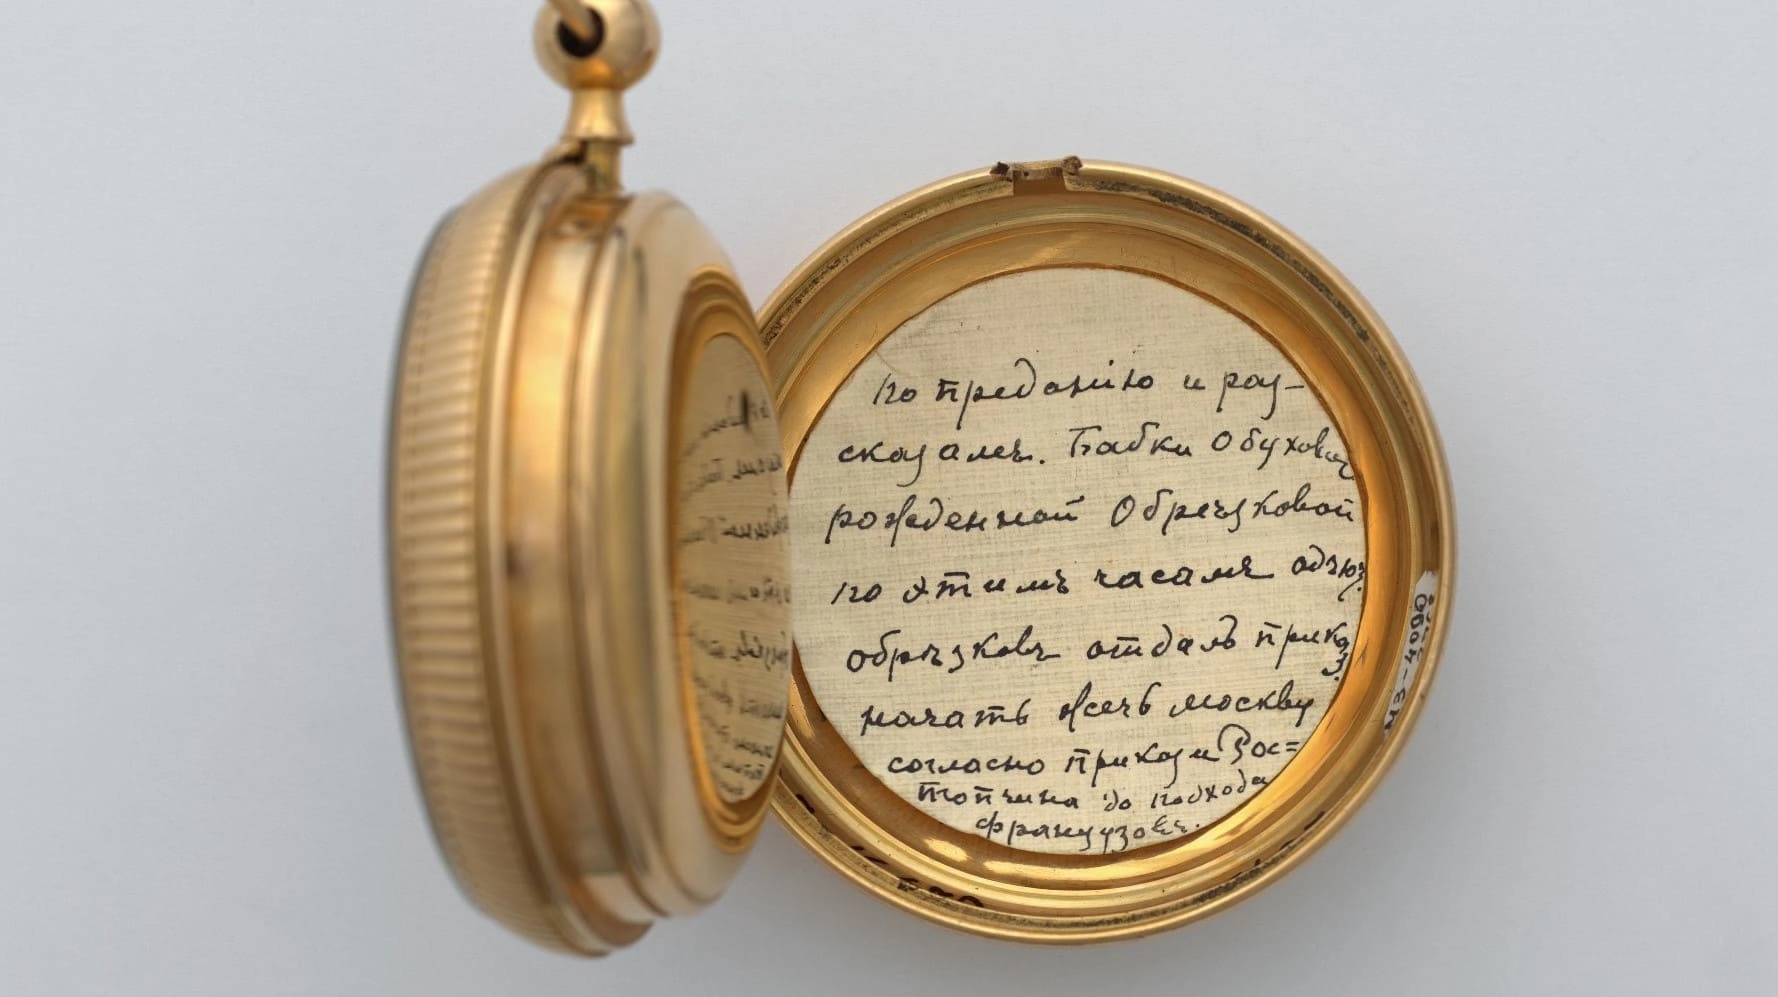 по преданію и раз-
сказамъ. Бабки Обуховой
рожденной Обрезковой
по этимъ часамъ адъют.
обрѣзковъ отдалъ приказ
начать жечь москву
согласно приказу Рос=
топчина до подхода
французовъ.
МЗ-4090